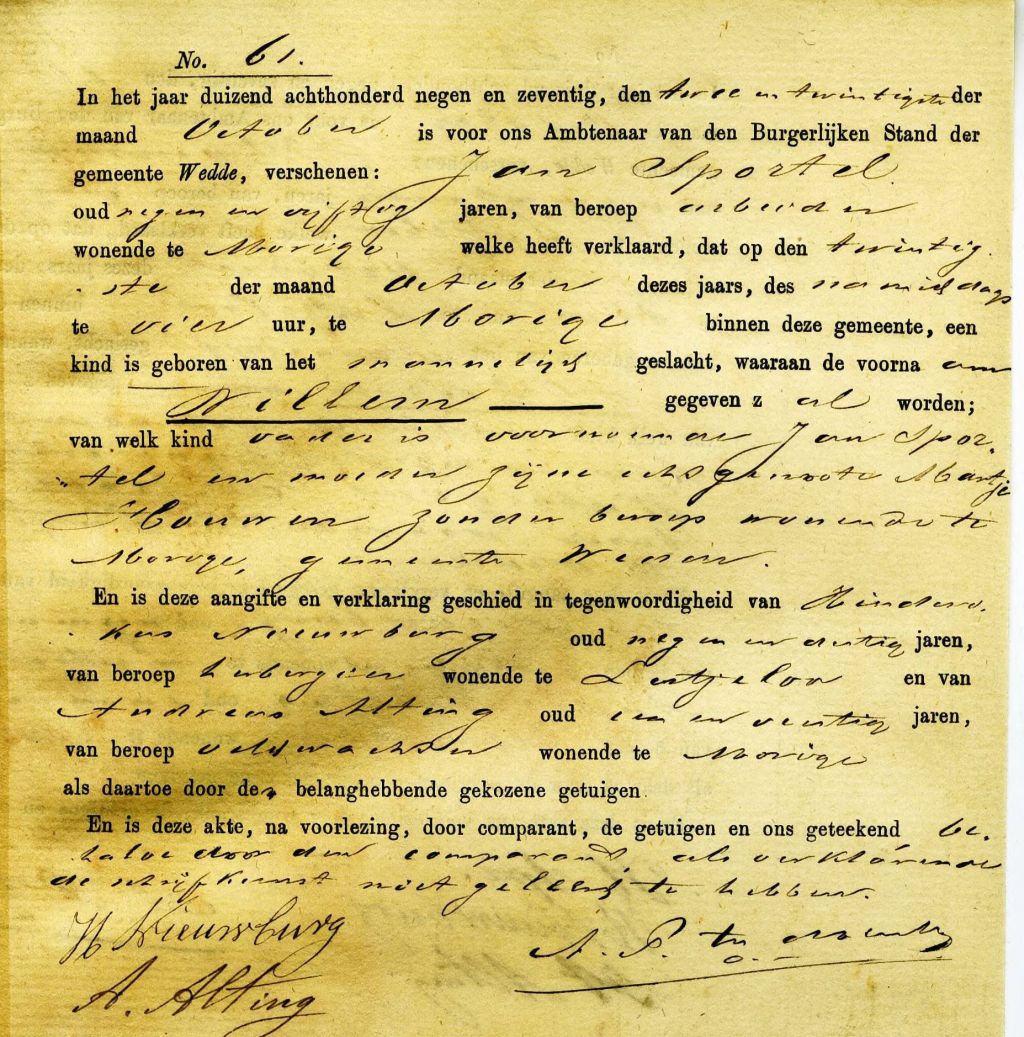 No. 61.
In het jaar duizend achthonderd negen en zeventig, den twee en twintigste der
maand October is voor ons Ambtenaar van den Burgerlijken Stand der
gemeente Wedde, verschenen: Jan Sportel
oud negen en vijftig jaren, van beroep arbeider
wonende te Morige welke heeft verklaard, dat op den twintig
ste der maand October dezes jaars, des namiddags
te vier uur, te Morige binnen deze gemeente, een
kind is geboren van het mannelijk geslacht, waaraan de voorna am
Willem gegeven z al worden;
van welk kind vader is voornoemde Jan Spor-
tel en moeder zijne echtgenoote Martje
Houwen zonder beroep wonende te
Morige, gemeente
En is deze aangifte en verklaring geschied in tegenwoordigheid van Hinderi-
kus Nieuwburg oud negen en jaren,
van beroep herbergier wonende te en van
Andreas Alting oud een en jaren,
van beroep veldwachter wonende te Morige
als daartoe door den belanghebbende gekozene getuigen
En is deze akte, na voorlezing, door comparant, de getuigen en ons geteekend be-
halve door den comparant als verklarende
de schrijfkunst niet geleerd te hebben.
H Nieuwburg
A. Alting